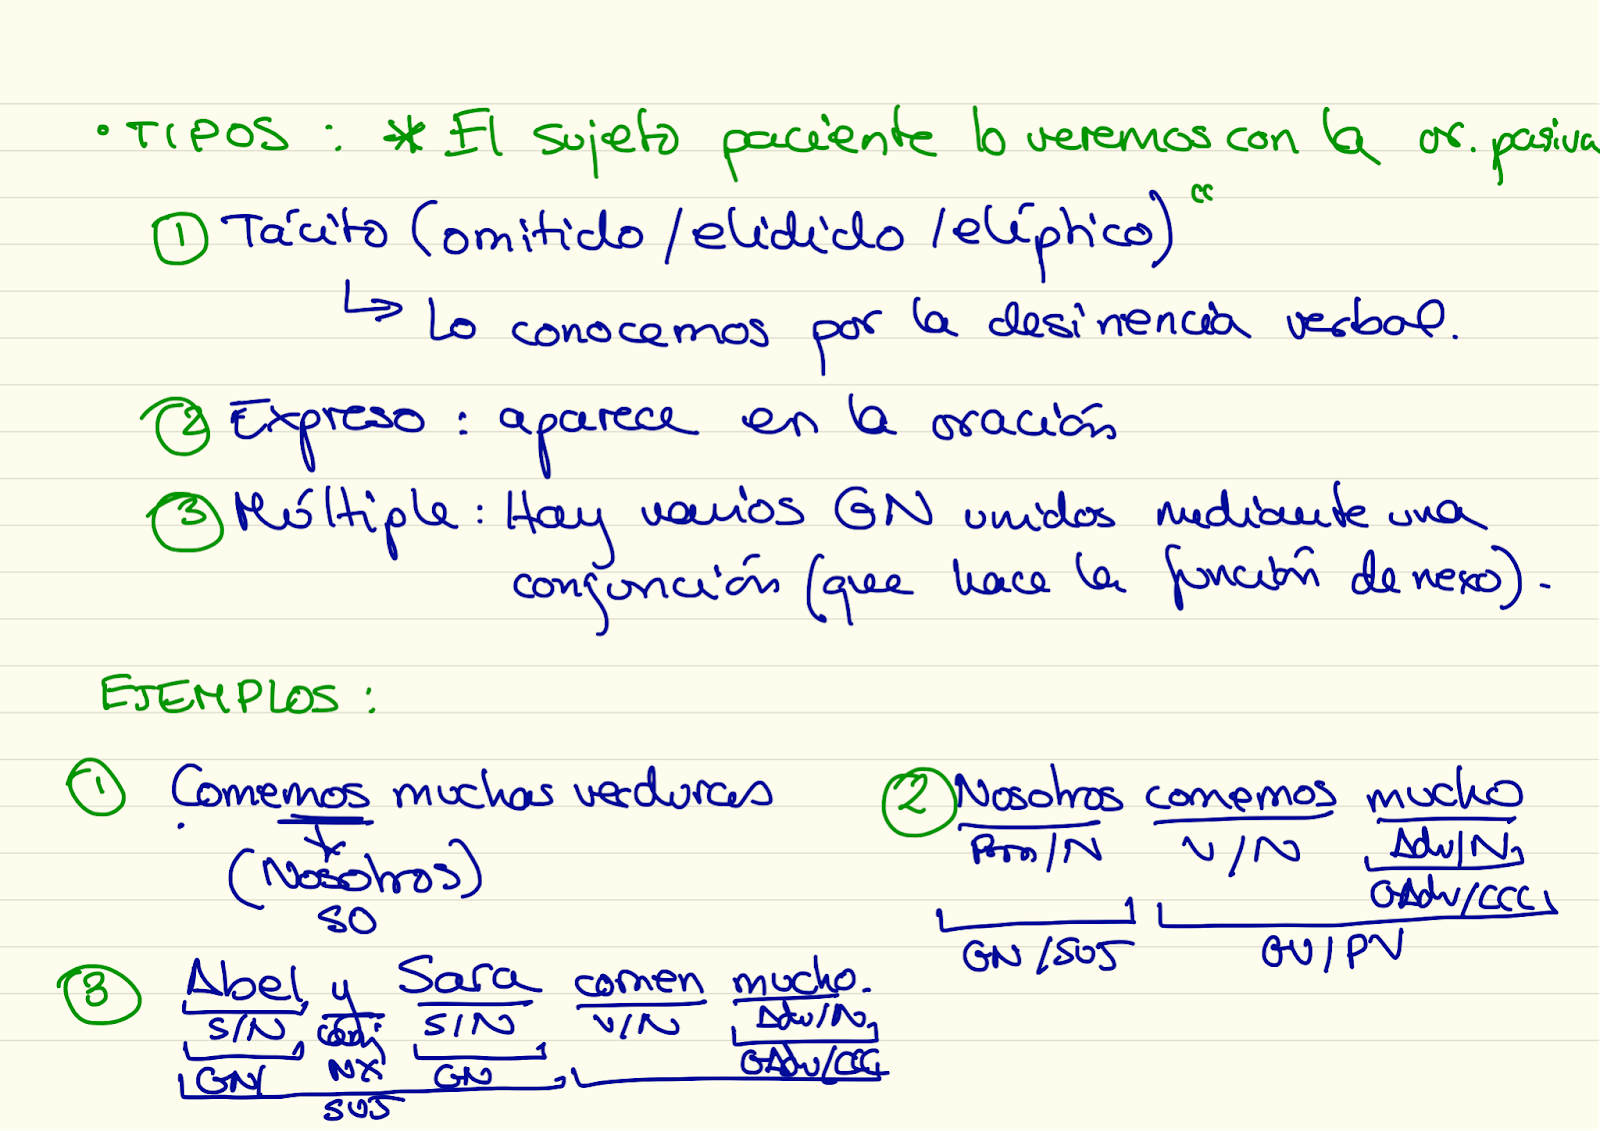 • TIPOS : * El sujeto paciente lo veremos con la or. pasiva
① Tácito (omitido / elidido / elíptico) "
↳ Lo conocemos por la desinencia verbal.
② Expreso : aparece en la oración
③ Múltiple : Hay varios GN unidos mediante una
conjunción (que hace la función de nexo).
EJEMPLOS :
① Comemos muchas verduras
(Nosotros)
SO
② Nosotros comemos mucho
Pron/N V/N Adv/N
GAdv/CCC
GN/SUJ GV/PV
③ Abel y Sara comen mucho.
S/N conj S/N V/N Adv/N
GN NX GN GAdv/CCC
SUJ